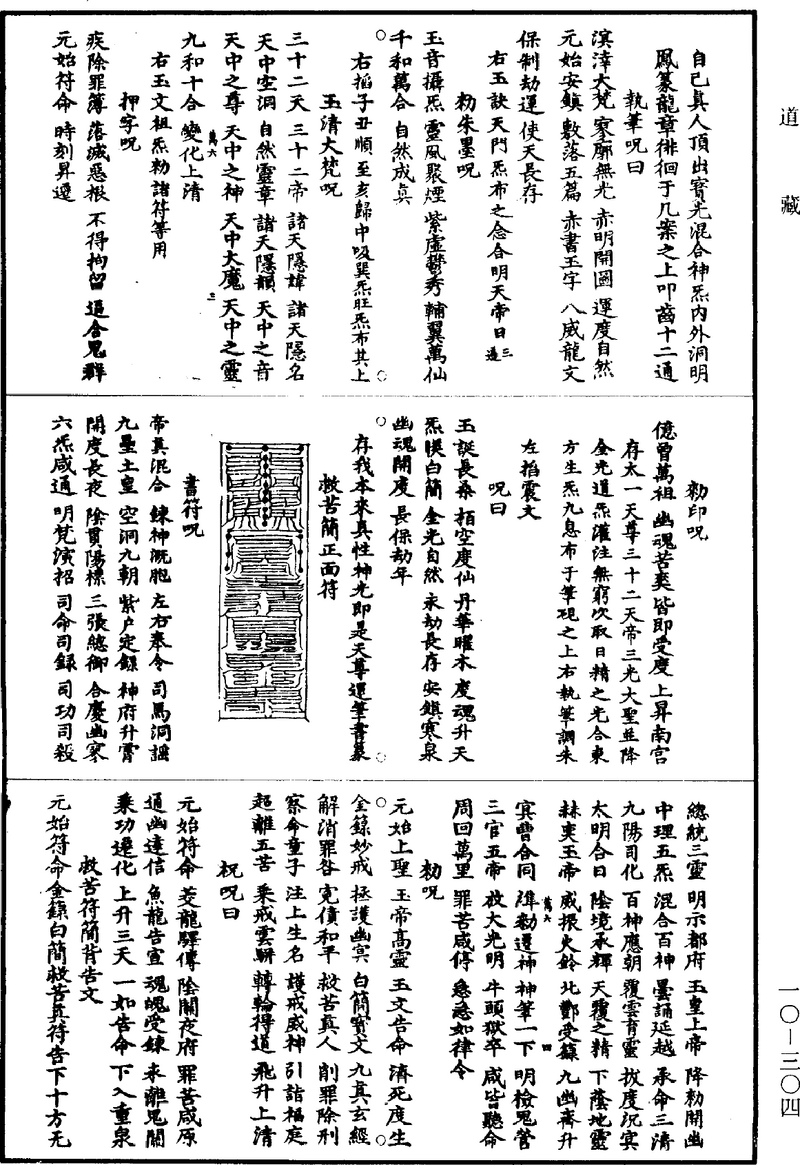 道藏
自己真人頂出寶光混合神炁內外洞明
鳳篆龍章徘徊于几案之上叩齒十二通
執筆呪曰
溟涬大梵 寥廓無光 赤明開圖 運度自然
元始安鎮 敷落五篇 赤書玉字 八威龍文
保制劫運 使天長存
右玉訣天門炁布之念合明天帝日三遍
勑朱墨呪
玉音攝炁 靈風聚煙 紫虛鬱秀 輔翼萬仙
千和萬合 自然成真
右掐子丑順至亥歸中吸巽炁旺炁布其上
玉清大梵呪
三十二天 三十二帝 諸天隱諱 諸天隱名
天中空洞 自然靈章 諸天隱韻 天中之音
天中之尊 天中之神 天中大魔 天中之靈
萬六 三
九和十合 變化上清
右玉文祖炁勑諸符等用
押字呪
疾除罪簿 落滅惡根 不得拘留 逼合鬼群
元始符命 時刻昇遷
勑印呪
億曾萬祖 幽魂苦爽 皆即受度 上昇南宮
存太一天尊三十二天帝三光大聖並降
金光道炁灌注無窮次取日精之光合東
方生炁九息布于筆硯之上右執筆調朱
左掐震文
呪曰
玉誕長桑 栢空度仙 丹華曜木 度魂升天
炁暎白簡 金光自然 永劫長存 安鎮寒泉
幽魂開度 長保劫年
存我本來真性神光即是天尊運筆書篆
救苦簡正面符
書符呪
帝真混合 鍊神溉胞 左右奉令 司馬洞謡
九壘土皇 空洞九朝 紫户定錄 神府升霄
開度長夜 陰貫陽標 三張總御 合慶幽寒
六炁咸通 明梵演招 司命司錄 司功司殺
總統三靈 明示都府 玉皇上帝 降勑開幽
中理五炁 混合百神 曇誦延越 承命三清
九陽司化 百神應朝 覆雲育靈 拔度沉冥
太明合日 陰境承輝 天覆之精 下蔭地靈
赫奕玉帝 威振火鈴 北酆受籙 九幽齋升
萬六 四
冥曹合同 降勑遷神 神筆一下 明檢鬼營
三官五帝 放大光明 牛頭獄卒 咸皆聽命
周回萬里 罪苦咸停 急急如律令
勑呪
元始上聖 玉帝高靈 玉文告命 濟死度生
金籙妙戒 拯護幽冥 白簡寶文 九真玄經
解消罪咎 寃債和平 救苦真人 削罪除刑
察命童子 注上生名 護戒威神 引詣福庭
超離五苦 乘戒雲軿 轉輪得道 飛升上清
祝呪曰
元始符命 茭龍驛傳 陰關夜府 罪苦咸原
通幽達信 魚龍告宣 魂魄受鍊 永離鬼關
乗功遷化 上升三天 一如告命 下入重泉
救苦符簡背告文
元始符命金籙白簡救苦真符告下十方无
一〇—三〇四